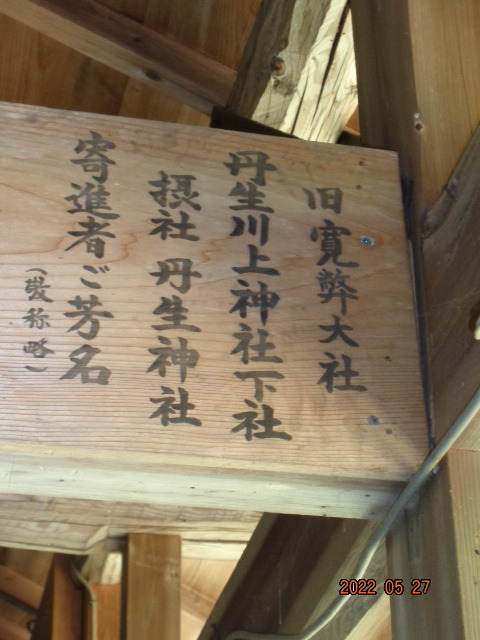 旧寛幣大社
丹生川上神社下社
摂社 丹生神社
寄進者ご芳名
(敬称略)
2022 05 27